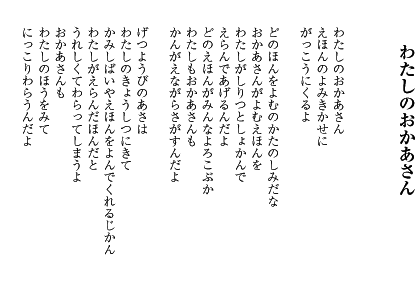 わたしのおかあさん
わたしのおかあさん
えほんのよみきかせに
がっこうにくるよ
どのほんをよむのかたのしみだな
おかあさんがよむえほんを
わたしがしりつとしょかんで
えらんであげるんだよ
どのえほんがみんなよろこぶか
わたしもおかあさんも
かんがえながらさがすんだよ
げつようびのあさは
わたしのきょうしつにきて
かみしばいやえほんをよんでくれるじかん
わたしがえらんだほんだと
うれしくてわらってしまうよ
おかあさんも
わたしのほうをみて
にっこりわらうんだよ